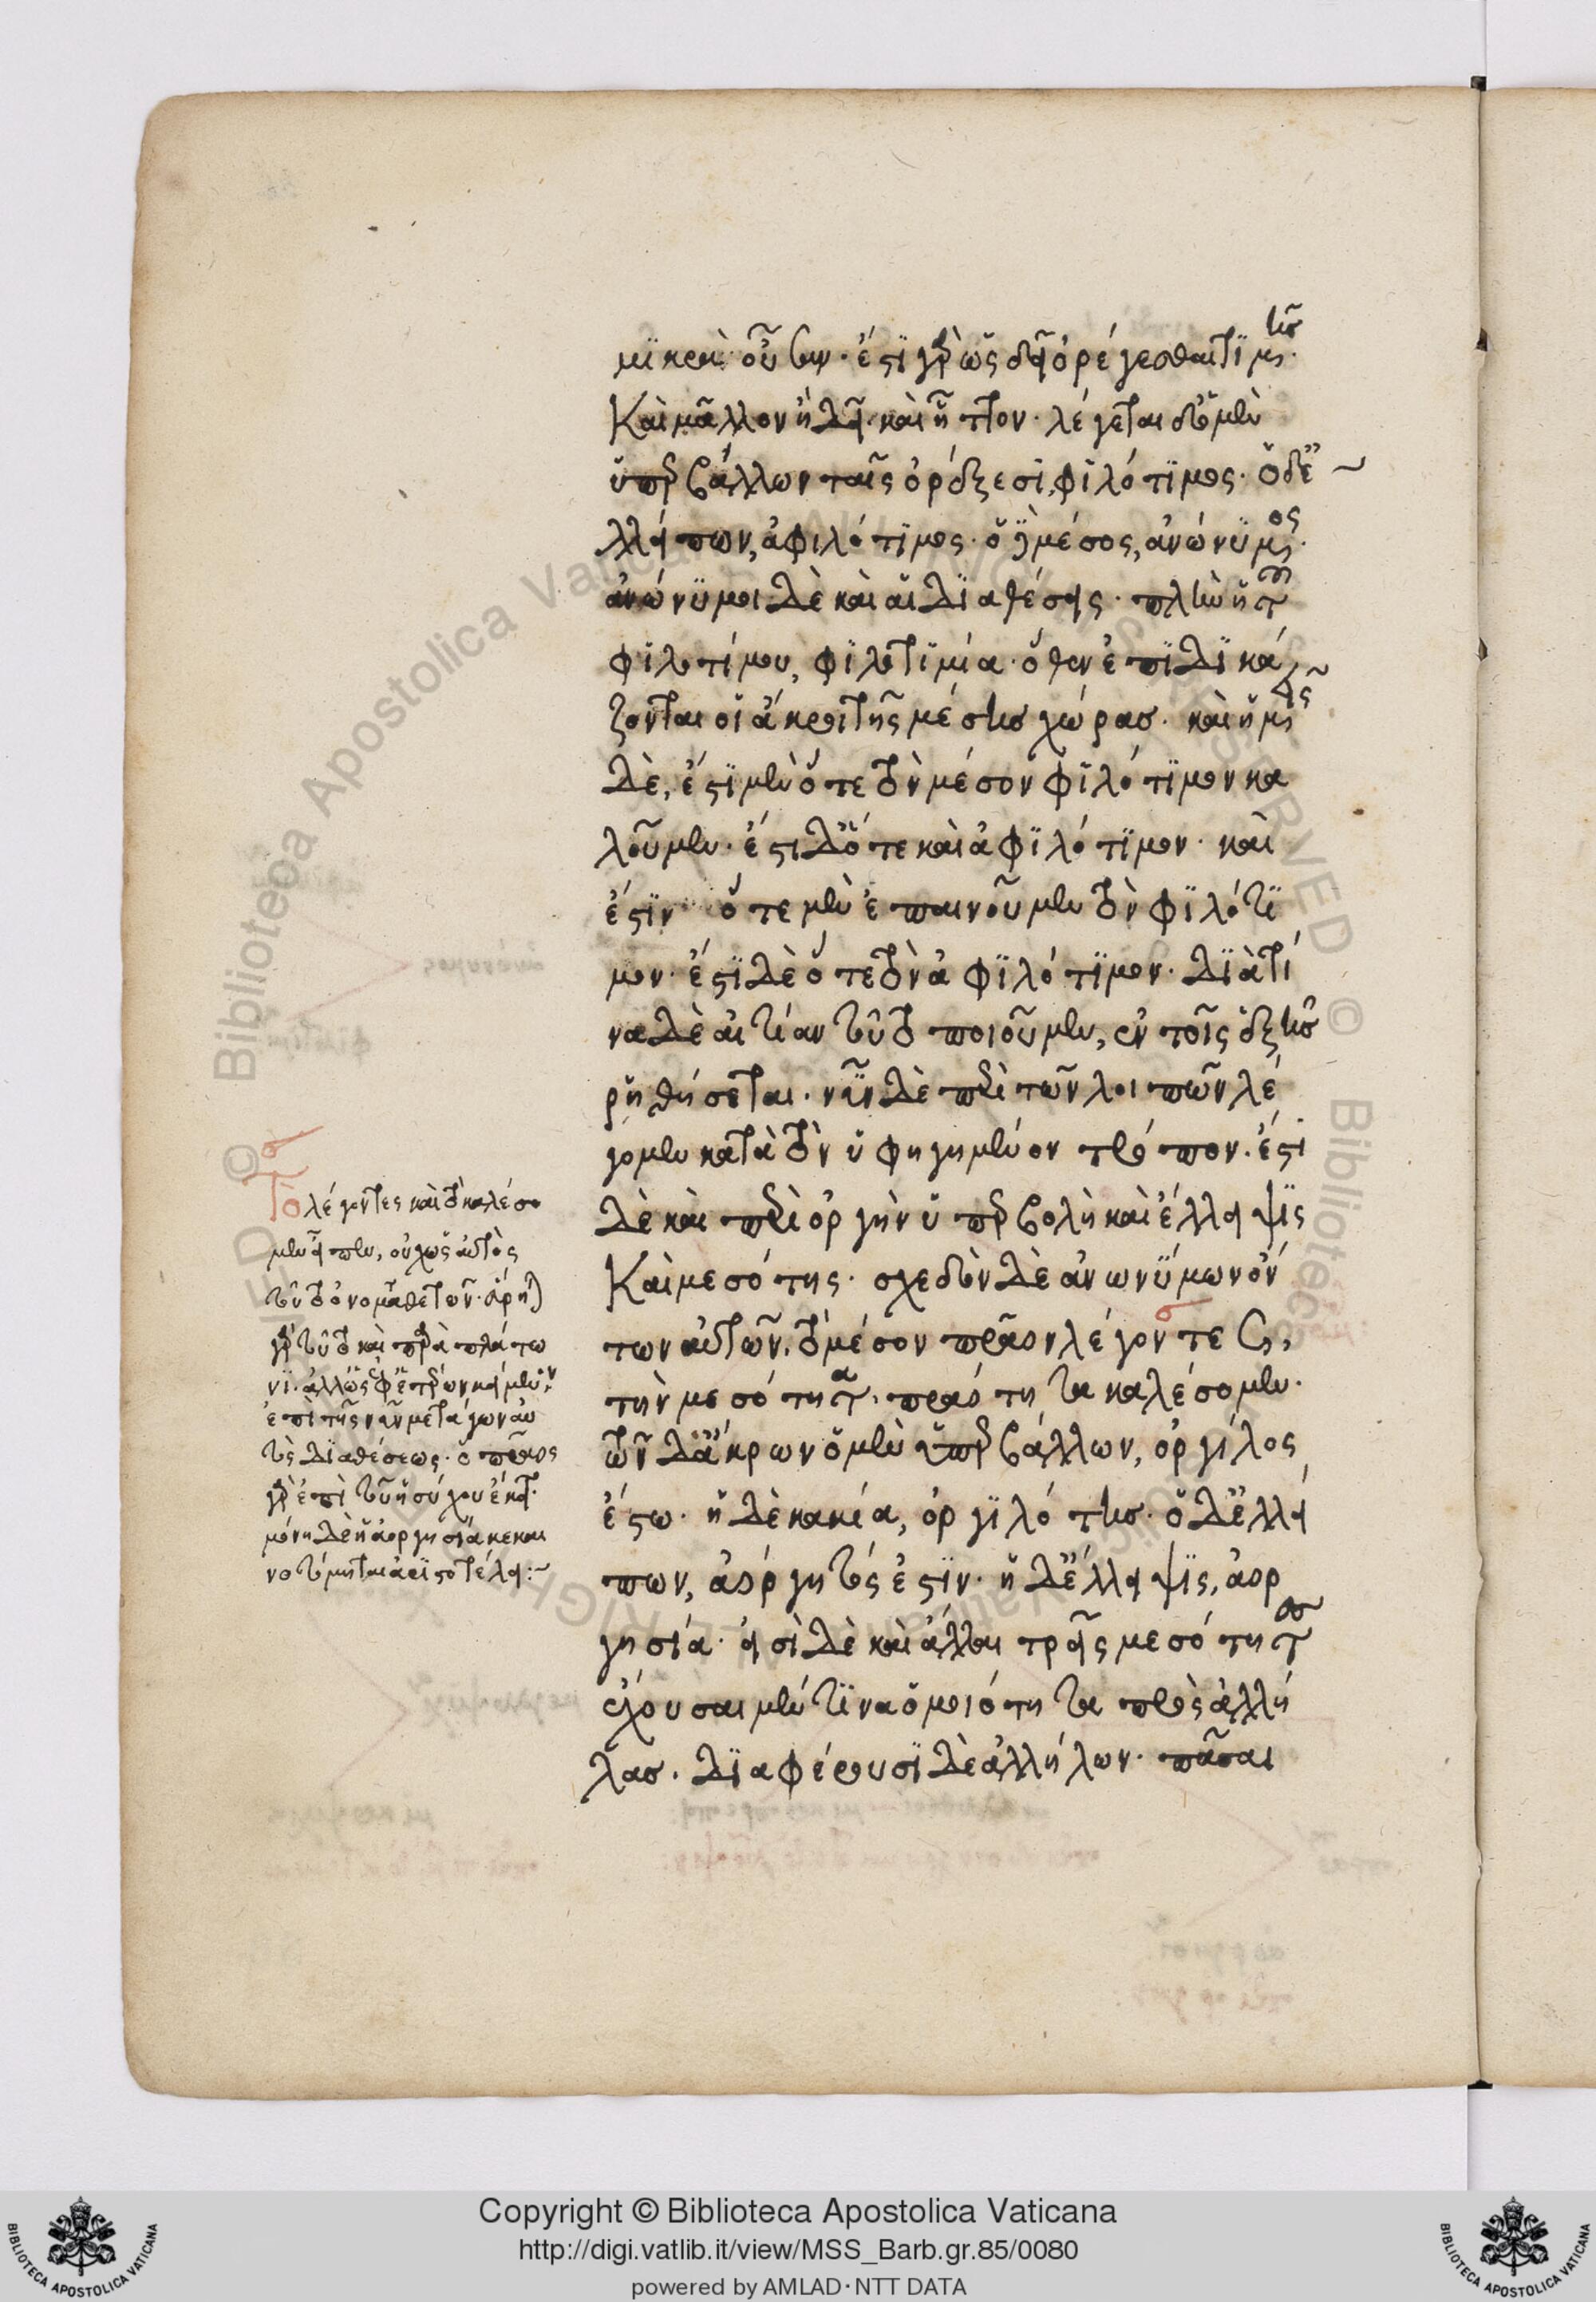 μικρὰ οὖσαν· ἔστι γὰρ ὡς δεῖ ὀρέγεσθαι τιμῆς·
καὶ μᾶλλον ἢ δεῖ· καὶ ἧττον· λέγεται δ' ὁ μὲν
ὑπερβάλλων ταῖς ὀρέξεσι, φιλότιμος· ὁ δ' ἐλ
λείπων, ἀφιλότιμος· ὁ δὲ μέσος, ἀνώνυμος·
ἀνώνυμοι δὲ καὶ αἱ διαθέσεις· πλὴν ἡ τοῦ
φιλοτίμου, φιλοτιμία· ὅθεν ἐπιδικά
ζονται οἱ ἄκροι τῆς μέσης χώρας· καὶ ἡμεῖς
δὲ, ἔστι μὲν ὅτε τὸν μέσον φιλότιμον κα
λοῦμεν· ἔστι δ' ὅτε καὶ ἀφιλότιμον· καὶ
ἔστιν ὅτε μὲν ἐπαινοῦμεν τὸν φιλότι
μον· ἔστι δὲ ὅτε τὸν ἀφιλότιμον· διὰ τί
να δὲ αἰτίαν τοῦτο ποιοῦμεν, ἐν τοῖς ἑξῆς
ῥηθήσεται· νῦν δὲ περὶ τῶν λοιπῶν λέ
γομεν κατὰ τὸν ὑφηγημένον τρόπον· ἔστι
δὲ καὶ περὶ ὀργὴν ὑπερβολὴ καὶ ἔλλειψις
καὶ μεσότης· σχεδὸν δὲ ἀνωνύμων ὄν
των αὐτῶν, τὸ μέσον πρᾶον λέγοντες,
τὴν μεσότητα, πραότητα καλέσομεν·
τῶν δ' ἄκρων ὁ μὲν ὑπερβάλλων, ὀργίλος
ἔστω· ἡ δὲ κακία, ὀργιλότης· ὁ δ' ἐλλεί
πων, ἀόργητός ἐστιν· ἡ δ' ἔλλειψις, ἀορ
γησία· εἰσὶ δὲ καὶ ἄλλαι τρεῖς μεσότητες
ἔχουσαι μέν τινα ὁμοιότητα πρὸς ἀλλή
λας· διαφέρουσι δὲ ἀλλήλων· πᾶσαι
Τὸ λέγοντες καὶ τὸ καλέσο
μεν εἶπεν, οὐχ ὡς αὐτὸς
τοῦτο ὀνοματοθετῶν· εἴρηται
γὰρ τοῦτο καὶ παρὰ πλάτω
νι·
ἐπὶ τῆς νῦν μετάγων αὐ
τὸ διαθέσεως· ὁ πρᾶος
γὰρ ἐπὶ τοῦ ἡσύχου
μόνη δὲ ἡ ἀοργησία κεκαι
νοτόμηται ἀριστοτέλει:~
Copyright © Biblioteca Apostolica Vaticana
http://digi.vatlib.it/view/MSS_Barb.gr.85/0080
powered by AMLAD·NTT DATA